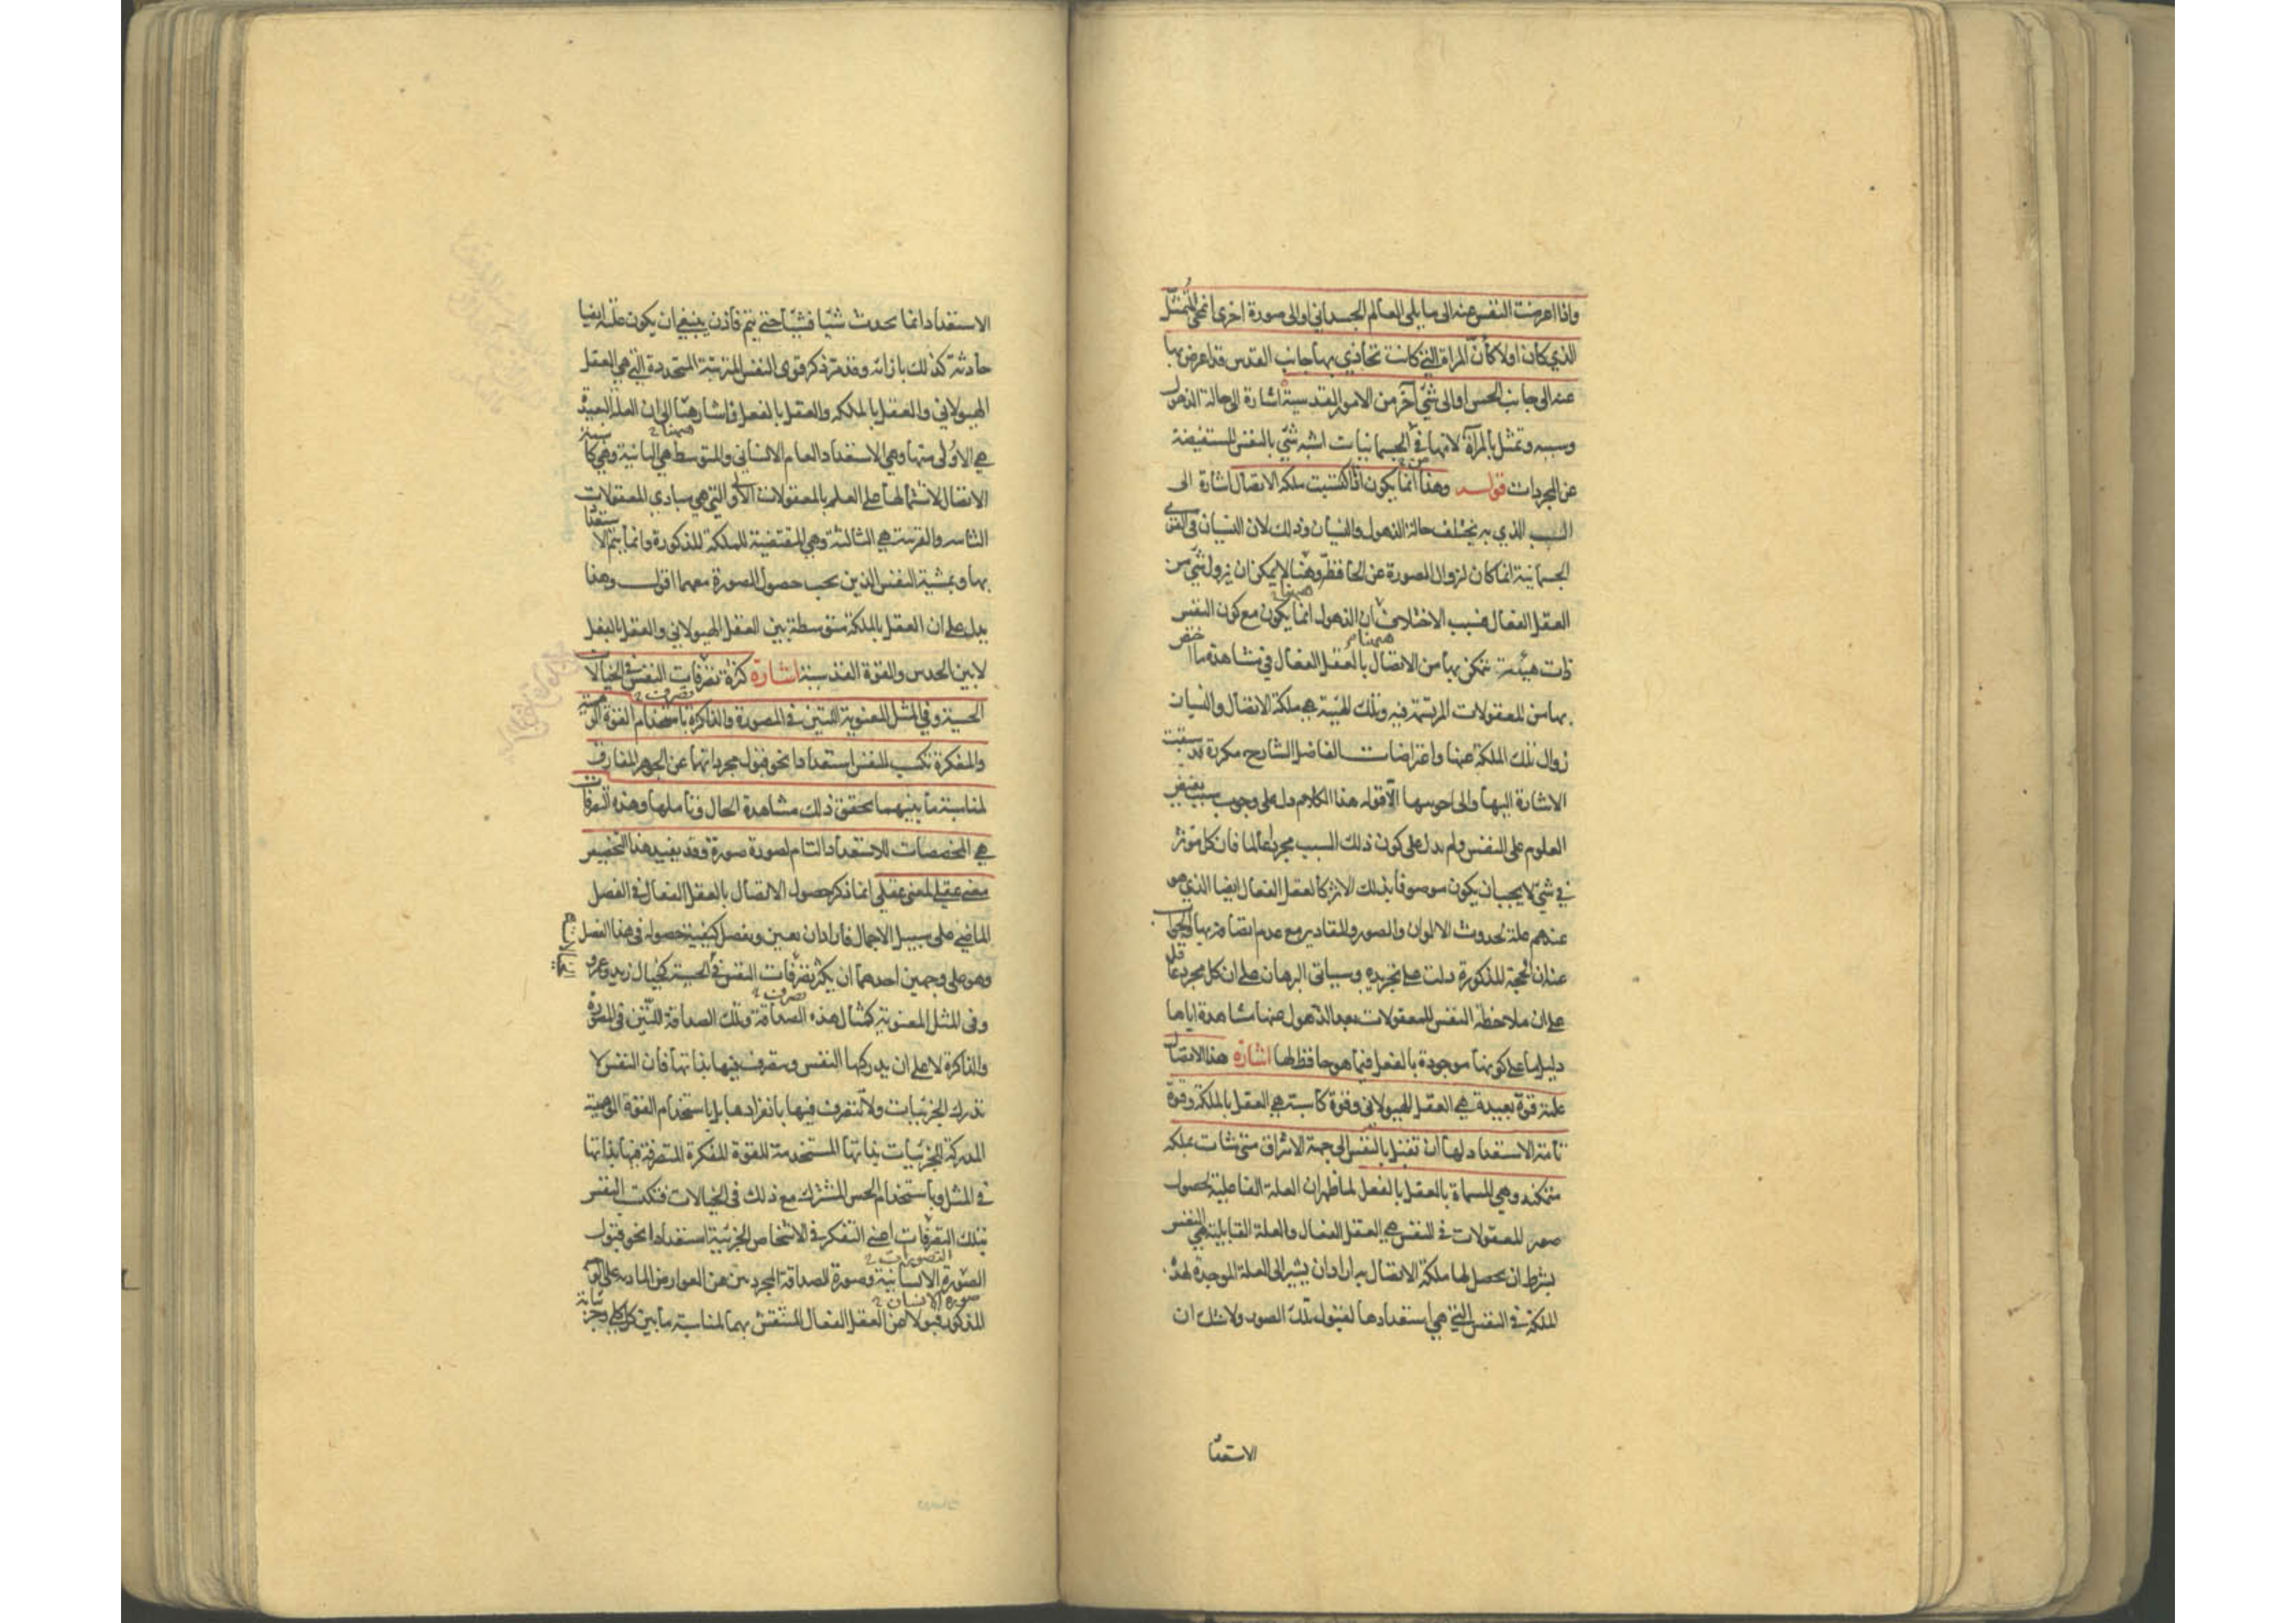 واذا اعرضت النفس عنه الى ما يلى العالم الجسدانى او الى صورة اخرى انمحى المتمثل
الذي كان اولا كأن المرآة التي كانت تحاذي بها جانب القدس قد اعرض بها
عنه الى جانب الحس او الى شئ آخر من الامور القدسية اشارة الى حالة الذهول
وسببه وتمثل بالمرآة لانها في الجسمانيات اشبه شئ بالنفس المستفيضة
عن المجردات قوله وهذا انما يكون اذا اكتسبت ملكة الاتصال اشارة الى
السبب الذي به يختلف حالة الذهول والنسيان وذلك لان النسيان في القوى
الجسمانية انما كان لزوال الصورة عن الحافظة وههنا لا يمكن ان يزول شئ من
العقل الفعال فسبب الاختلاف ان الذهول انما يكون مع كون النفس
ذات هيئة تتمكن بها من الاتصال بالعقل الفعال في مشاهدة ما اختص
بها من المعقولات المرتسمة فيه وتلك الهيئة هي ملكة الاتصال والنسيان
زوال تلك الملكة عنها واعتراضات الفاضل الشارح مكررة قد سبقت
الاشارة اليها والى اجوبتها الا قوله هذا الكلام دل على وجوب سبب يفيض
العلوم على النفس ولم يدل على كون ذلك السبب مجردا عالما فان كل مؤثر
في شئ لا يجب ان يكون موصوفا بذلك الاثر كالعقل الفعال ايضا الذي هو
عندهم علة لحدوث الالوان والصور والمقادير مع عدم اتصافه بها والجواب
عنه ان الحجة المذكورة دلت على تجرده وسيأتى البرهان على ان كل مجرد عاقل
على ان ملاحظة النفس للمعقولات بعد الذهول عنها مشاهدة اياها
دليل ما على كونها موجودة بالفعل فيما هو حافظ لها اشارة هذا الاتصال
علته قوة بعيدة هي العقل الهيولانى وقوة كاسبة هي العقل بالملكة وقوة
تامة الاستعداد لها ان تقبل بالنفس الى جهة الاشراق متى شاءت بملكة
متمكنة وهي المسماة بالعقل بالفعل لما ظهر ان العلة الفاعلية لحصول
صور المعقولات في النفس هي العقل الفعال والعلة القابلية هي النفس
بشرط ان يحصل لها ملكة الاتصال به اراد ان يشير الى العلة الموجدة لهذه
الملكة في النفس التي هي استعدادها لقبول تلك الصور ولا شك ان
الاستعدا
الاستعداد انما يحدث شيئا فشيئا حتى يتم فاذن ينبغي ان يكون علته ايضا
حادثة كذلك بازائه وقد مر ذكر قوى النفس المترتبة المتجددة التي هي العقل
الهيولانى والعقل بالملكة والعقل بالفعل فاشار ههنا الى ان العلة البعيدة
هي الاولى منها وهي الاستعداد العام الانسانى والمتوسط هي الثانية وهي كاسبة
الاتصال لاشتمالها على العلم بالمعقولات الاولى التي هي مبادي المعقولات
الثانية والقريبة هي الثالثة وهي المقتضية للملكة المذكورة وانما يتم الاستعداد
بها وبمشية النفس الذين يجب حصول الصورة معهما اقول وهذا
يدل على ان العقل بالملكة متوسطة بين العقل الهيولانى والعقل بالفعل
لا بين الحدس والقوة القدسية اشارة كثرة تصرفات النفس في الخيالات
الحسية وفي المثل المعنوية اللتين في المصورة والذاكرة باستخدام القوة الوهمية
والمفكرة تكسب للنفس استعدادا نحو قبول مجرداتها عن الجوهر المفارق
لمناسبة ما بينهما يحقق ذلك مشاهدة الحال وتأملها وهذه التصرفات
هي المخصصات للاستعداد التام لصورة صورة وقد يفيد هذا التخصيص
معنى عقلي لمعنى عقلي انما ذكر حصول الاتصال بالعقل الفعال في الفصل
الماضى على سبيل الاجمال فاراد ان يعين ويفصل كيفية حصوله في هذا الفصل
وهو على وجهين احدهما ان يكثر تصرفات النفس في الحسية كخيال زيد وعمرو
وفى المثل المعنوية كمثال هذه الصداقة وتلك الصداقة اللتين في المصورة
والذاكرة لا على ان يدركها النفس ويتصرف فيها بذاتها فان النفس لا
تدرك الجزئيات ولا تتصرف فيها بانفرادها بل باستخدام القوة الوهمية
المدركة للجزئيات بذاتها المستخدمة للقوة المفكرة المتصرفة فيها بذاتها
في المثل وباستخدام الحس المشترك مع ذلك في الخيالات فتكتسب النفس
بتلك التصرفات اعنى التفكر في الاشخاص الجزئية استعدادا نحو قبول
الصورة الانسانية وصورة الصداقة المجردتين عن العوارض المادية على الوجه
المذكور قبولا عن العقل الفعال المنتقش بهما لمناسبة ما بين كل كلي وجزئياته